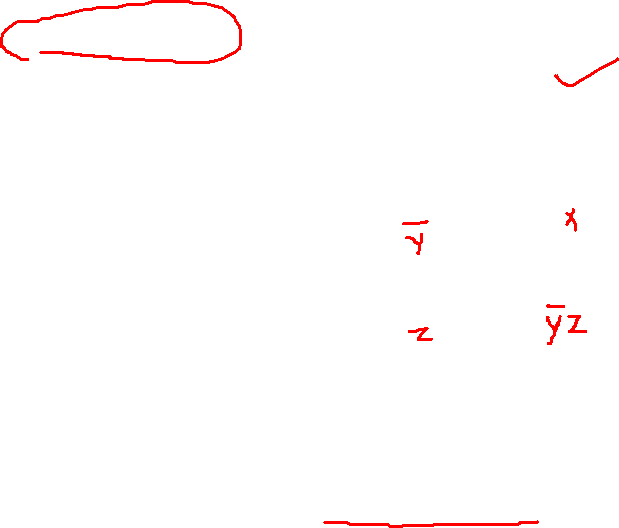 y̅ x
z y̅z